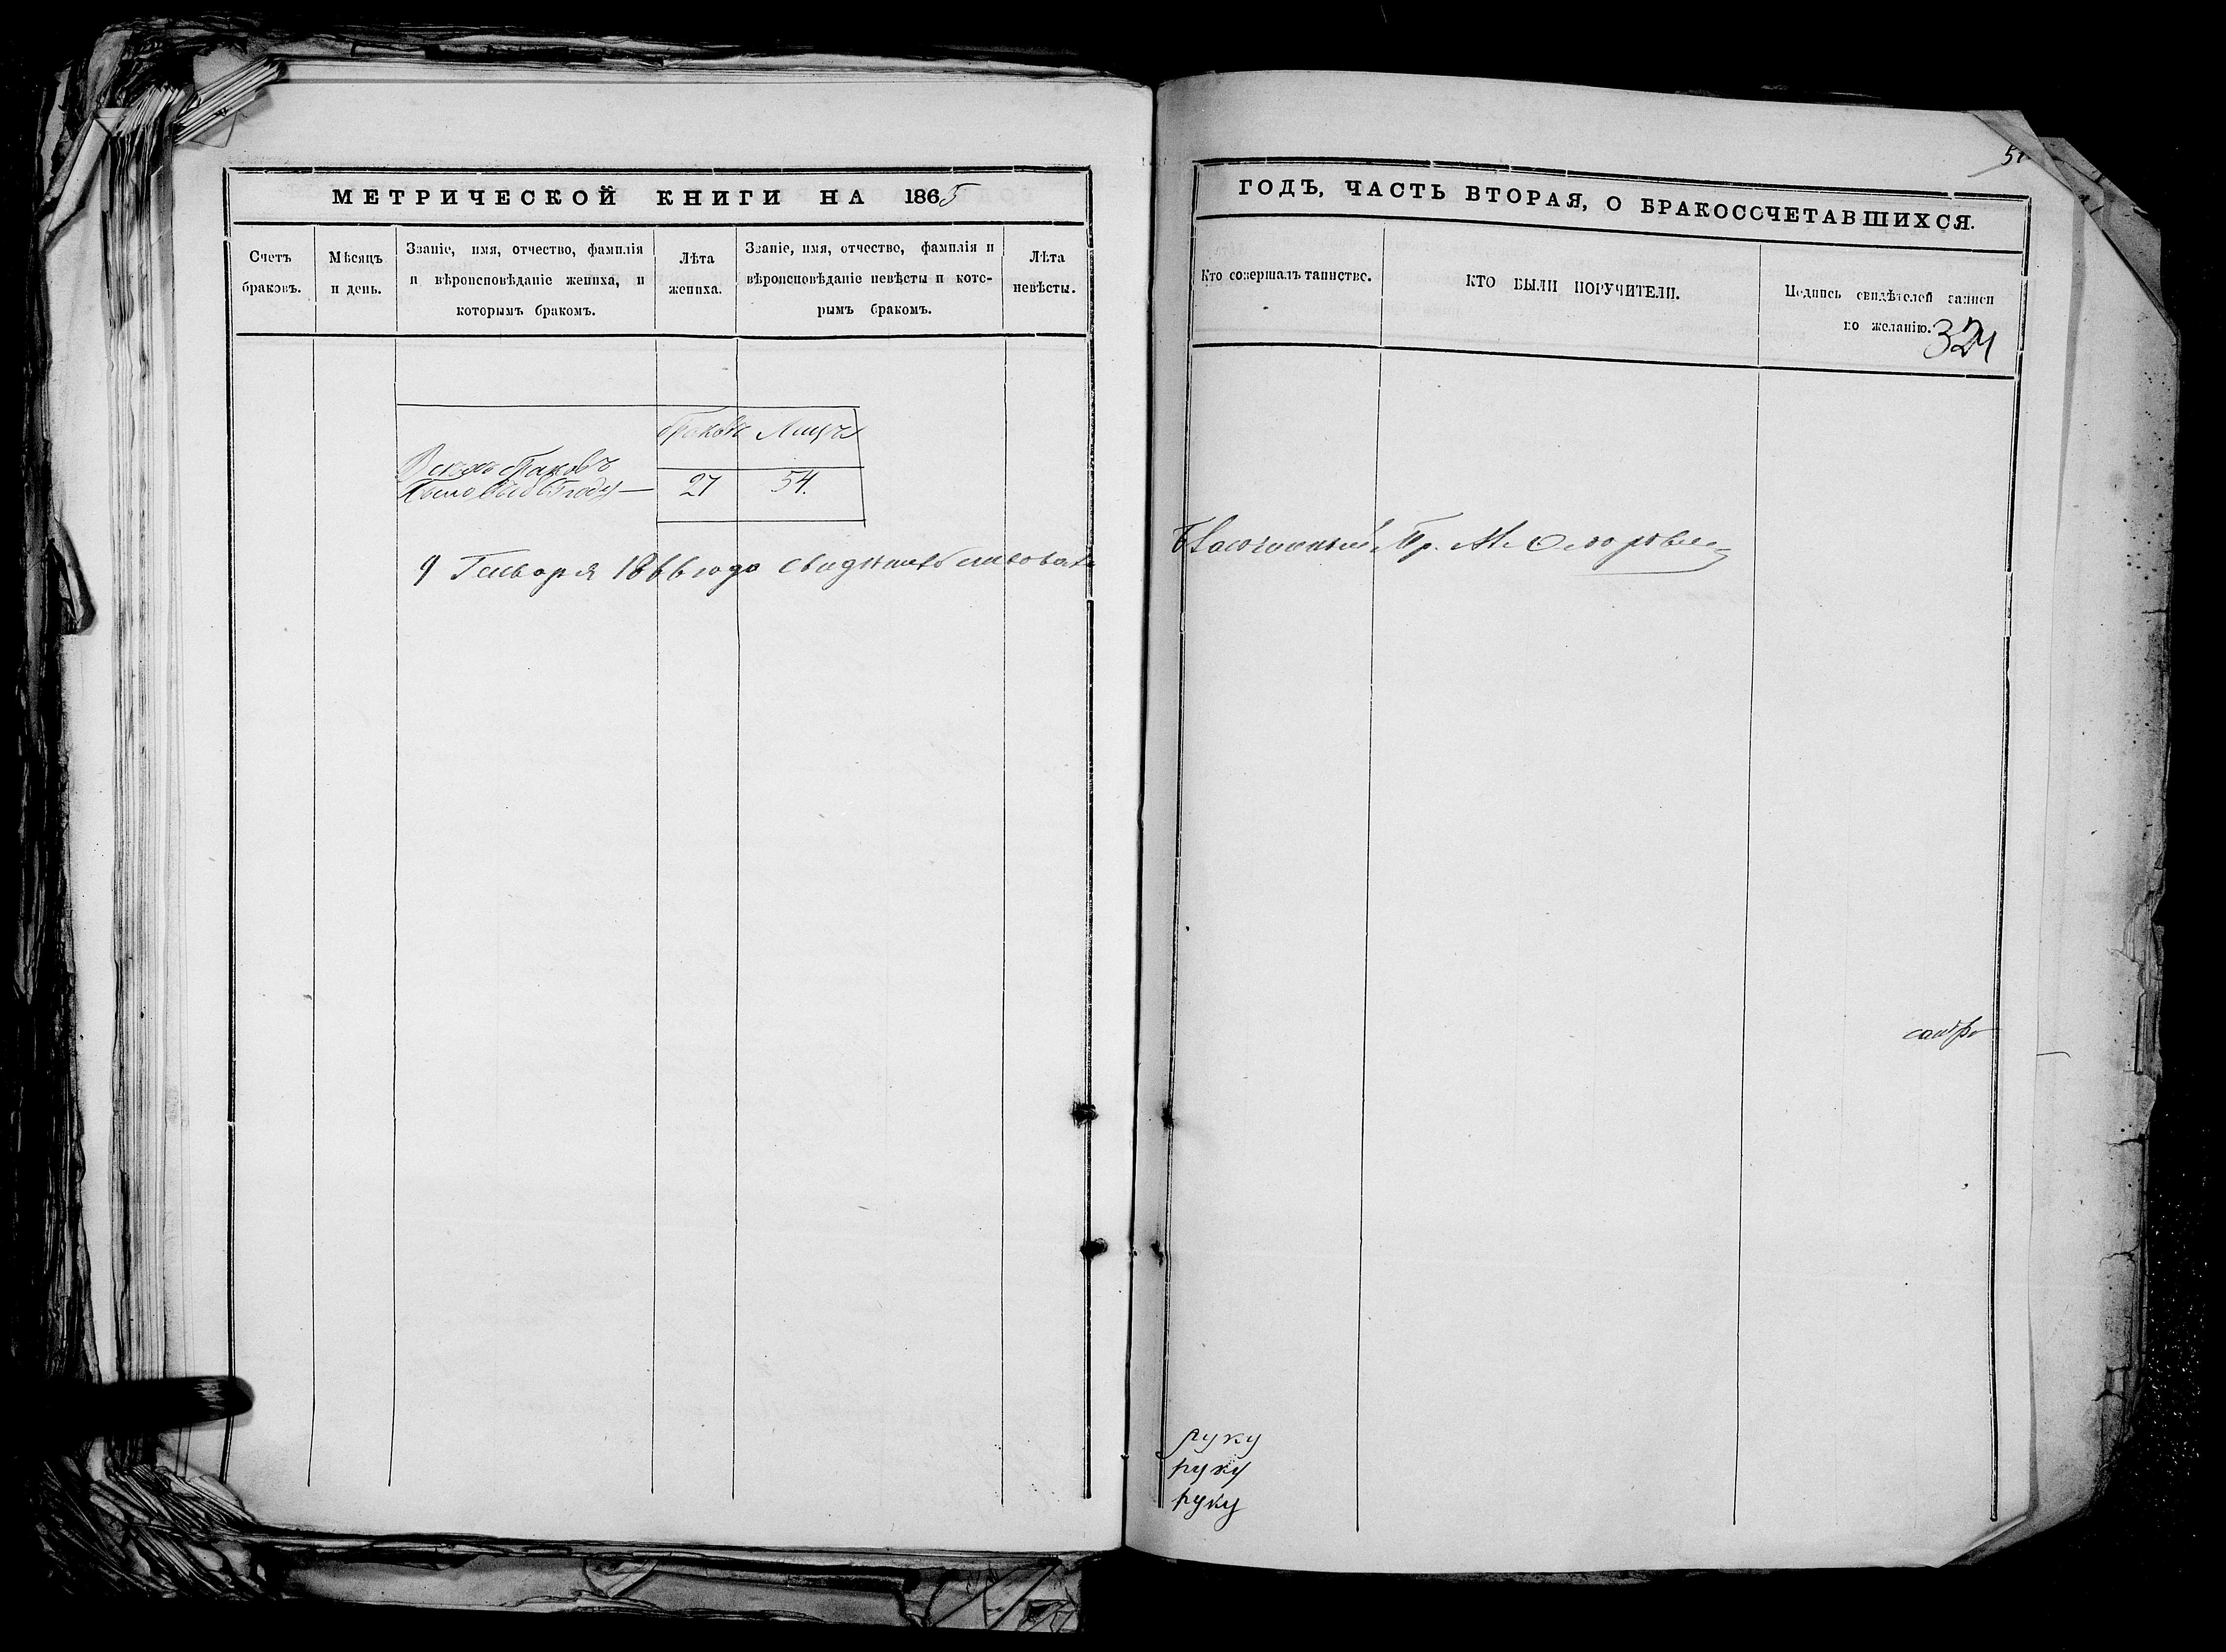 МЕТРИЧЕСКОЙ КНИГИ НА 1865
Счетъ браковъ.
Мѣсяцъ и день.
Званіе, имя, отчество, фамилія
и вѣроисповѣданіе жениха, и
которымъ бракомъ.
Лѣта жениха.
Званіе, имя, отчество, фамилія и
вѣроисповѣданіе невѣсты и кото-
рымъ бракомъ.
Лѣта невѣсты.
браковъ Лицъ
браковъ
было въ 1865 году — 27 54.
9 Генваря 1866 года свидѣтельствовалъ
51
ГОДЪ, ЧАСТЬ ВТОРАЯ, О БРАКОСОЧЕТАВШИХСЯ.
Кто совершалъ таинство.
КТО БЫЛИ ПОРУЧИТЕЛИ.
Подпись свидѣтелей записи
по желанію.
324
Благочинный Пр. М.
руку
руку
руку